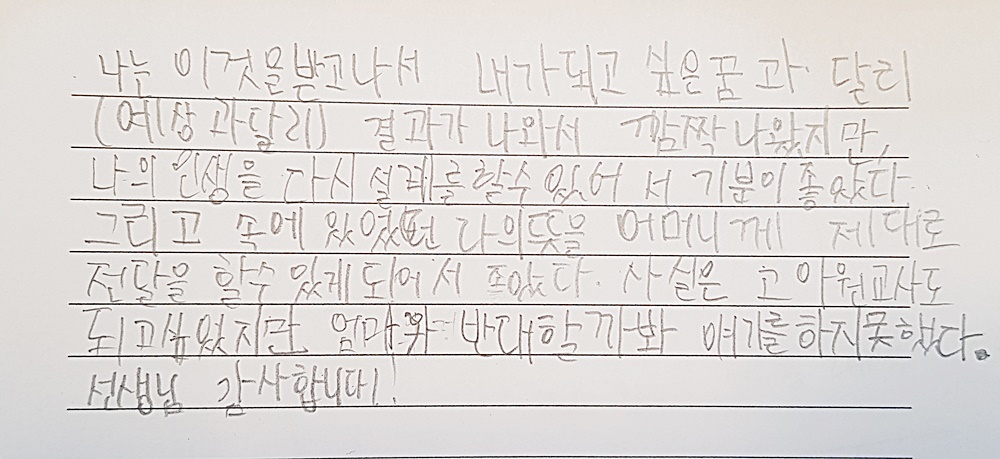 나는 이것을받고나서 내가되고 싶은꿈과 달리
(예상과달리) 결과가 나와서 깜짝나왔지만,
나의인생을 다시설레를할수 있어서 기분이좋았다.
그리고 속에 있었떤 나의뜻을 어머니께 제대로
전달을 할수있게되어서 좋았다. 사실은 고아원교사도
되고싶었지만 엄마와 반대할까봐 얘기를하지못했다.
선생님 감사합니다!